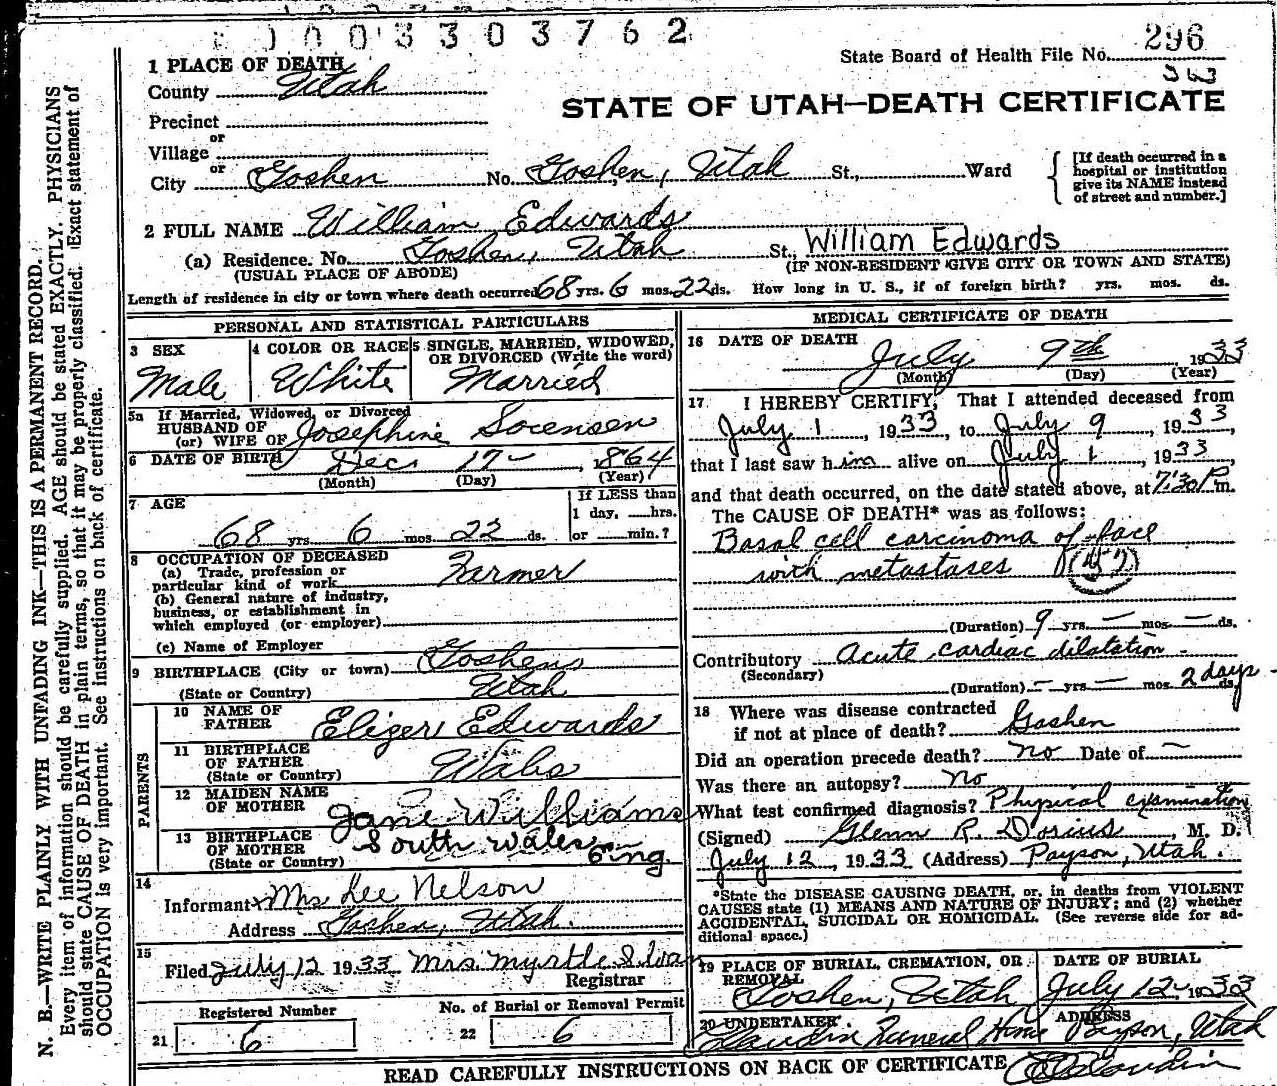 1003303762
State Board of Health File No. 296
STATE OF UTAH—DEATH CERTIFICATE
1 PLACE OF DEATH
County Utah
Precinct
or
Village
or
City Goshen No. Goshen, Utah St., Ward
[If death occurred in a
hospital or institution
give its NAME instead
of street and number.]
2 FULL NAME William Edwards
(a) Residence. No. Goshen, Utah St., William Edwards
(USUAL PLACE OF ABODE) (IF NON-RESIDENT GIVE CITY OR TOWN AND STATE)
Length of residence in city or town where death occurred 68 yrs. 6 mos. 22 ds. How long in U. S., if of foreign birth? yrs. mos. ds.
PERSONAL AND STATISTICAL PARTICULARS
3 SEX
Male
4 COLOR OR RACE
White
5 SINGLE, MARRIED, WIDOWED,
OR DIVORCED (Write the word)
Married
5a If Married, Widowed, or Divorced
HUSBAND OF
(or) WIFE OF Josephine Sorensen
6 DATE OF BIRTH Dec 17 , 1864
(Month) (Day) (Year)
7 AGE
68 yrs. 6 mos. 22 ds.
If LESS than
1 day, hrs.
or min.?
8 OCCUPATION OF DECEASED
(a) Trade, profession or
particular kind of work Farmer
(b) General nature of industry,
business, or establishment in
which employed (or employer)
(c) Name of Employer
9 BIRTHPLACE (City or town) Goshen
(State or Country) Utah
PARENTS
10 NAME OF
FATHER Eliezer Edwards
11 BIRTHPLACE
OF FATHER
(State or Country) Wales
12 MAIDEN NAME
OF MOTHER Jane Williams
13 BIRTHPLACE
OF MOTHER
(State or Country) South Wales Eng.
14
Informant Mrs Lee Nelson
Address Goshen, Utah.
15
Filed July 12 1933 Mrs Myrtle
Registrar
Registered Number
21 6
No. of Burial or Removal Permit
22 6
MEDICAL CERTIFICATE OF DEATH
16 DATE OF DEATH
July 9th 1933
(Month) (Day) (Year)
17 I HEREBY CERTIFY, That I attended deceased from
July 1, 1933, to July 9, 1933,
that I last saw him alive on July 1, 1933,
and that death occurred, on the date stated above, at 7:30 P m.
The CAUSE OF DEATH* was as follows:
Basal cell carcinoma of face
with metastases
(Duration) 9 yrs. — mos. — ds.
Contributory Acute cardiac dilatation
(Secondary)
(Duration) — yrs. — mos. 2 days ds.
18 Where was disease contracted
if not at place of death? Goshen
Did an operation precede death? no Date of —
Was there an autopsy? no
What test confirmed diagnosis? Physical examination
(Signed) Glenn R. Dorius, M. D.
July 12, 1933 (Address) Payson, Utah.
*State the DISEASE CAUSING DEATH, or, in deaths from VIOLENT
CAUSES state (1) MEANS AND NATURE OF INJURY; and (2) whether
ACCIDENTAL, SUICIDAL OR HOMICIDAL. (See reverse side for ad-
ditional space.)
19 PLACE OF BURIAL, CREMATION, OR
REMOVAL
Goshen, Utah
DATE OF BURIAL
July 12, 1933
20 UNDERTAKER
Funeral Home
ADDRESS
Payson, Utah
READ CAREFULLY INSTRUCTIONS ON BACK OF CERTIFICATE
N. B.—WRITE PLAINLY WITH UNFADING INK—THIS IS A PERMANENT RECORD.
Every item of information should be carefully supplied. AGE should be stated EXACTLY. PHYSICIANS
should state CAUSE OF DEATH in plain terms, so that it may be properly classified. Exact statement of
OCCUPATION is very important. See instructions on back of certificate.